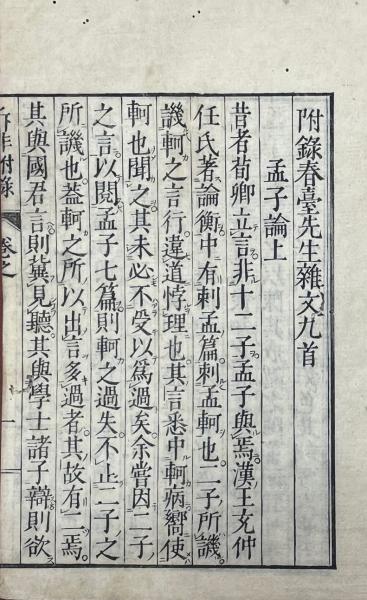 附錄春臺先生雜文九首
孟子論上
昔者荀卿立言非十二子孟子與焉漢王充仲
任氏著論衡中有刺孟篇刺孟軻也二子所譏
譏軻之言行違道悖理也其言悉中軻病嚮使
軻也聞之其未必不受以爲過矣余嘗因二子
之言以閱孟子七篇則軻之過失不止二子之
所譏也蓋軻之所以出言多過者其故有二焉
其與國君言則冀見聽其與學士諸子辯則欲
附錄
卷之
一